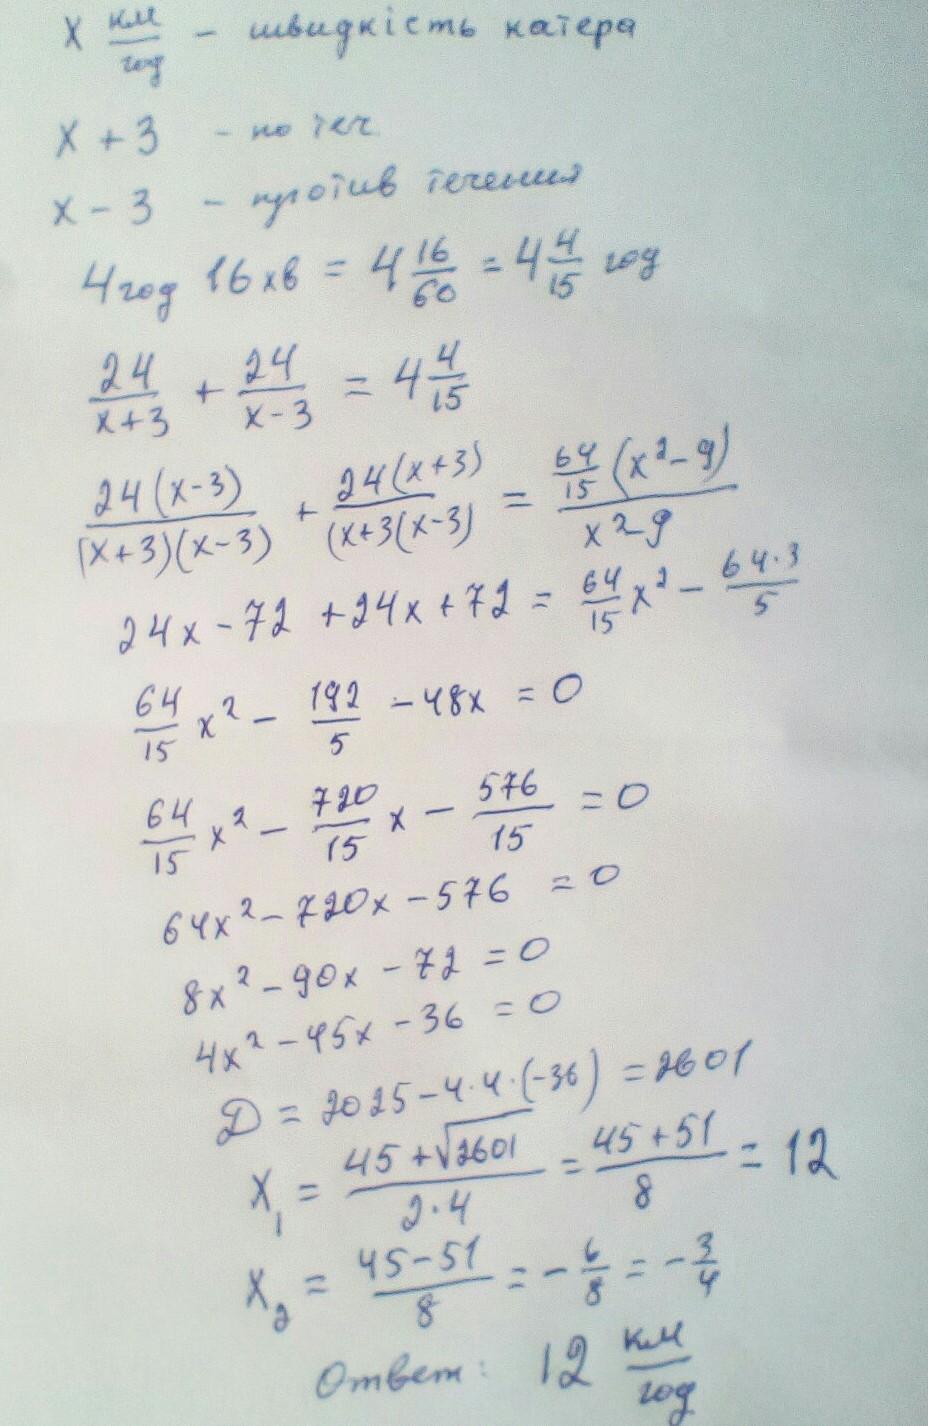 x км/год - швидкість катера
x + 3 - по теч.
x - 3 - против течения
4 год 16 хв = 4 16/60 = 4 4/15 год
24/(x+3) + 24/(x-3) = 4 4/15
24(x-3)/(x+3)(x-3) + 24(x+3)/(x+3(x-3) = 64/15 (x²-9)/x²-9
24x - 72 + 24x + 72 = 64/15 x² - 64·3/5
64/15 x² - 192/5 - 48x = 0
64/15 x² - 720/15 x - 576/15 = 0
64x² - 720x - 576 = 0
8x² - 90x - 72 = 0
4x² - 45x - 36 = 0
Д = 2025 - 4·4·(-36) = 2601
x₁ = (45 + √2601)/(2·4) = (45 + 51)/8 = 12
x₂ = (45 - 51)/8 = - 6/8 = - 3/4
Ответ: 12 км/год